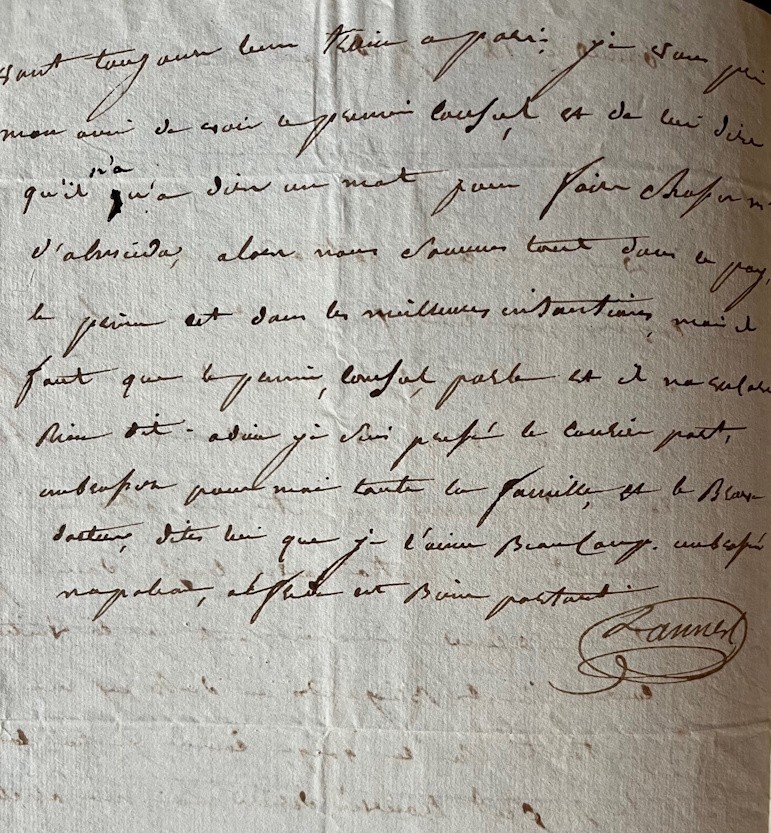 vont toujours leur train a paris, je vous pri
mon ami de voir le premier Consul, et de lui dire
qu'il n'a qu'a dire un mot pour faire Chasser mr
d'almeida, alors nous sommes tout dans ce pay,
le prince est dans les meilleures intantions, mais il
faut que le premier, Consul, parle et il na encore
Rien dit - adieu je suis pressé le courier part,
embrassez pour moi toute la famille, et le Brave
docteur, dites lui que je l'aime Beaucoup. embrassé
napoleon, alfred est Bien portant
Lannes